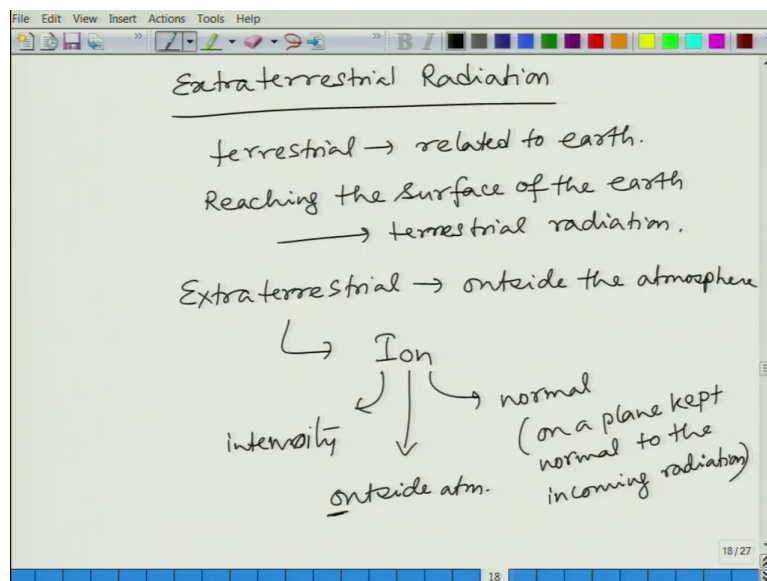 File Edit View Insert Actions Tools Help
B I
Extraterrestrial Radiation
terrestrial → related to earth.
Reaching the surface of the earth
→ terrestrial radiation.
Extraterrestrial → outside the atmosphere
Ion
intensity
outside atm.
normal
(on a plane kept
normal to the
incoming radiation)
18/27
18